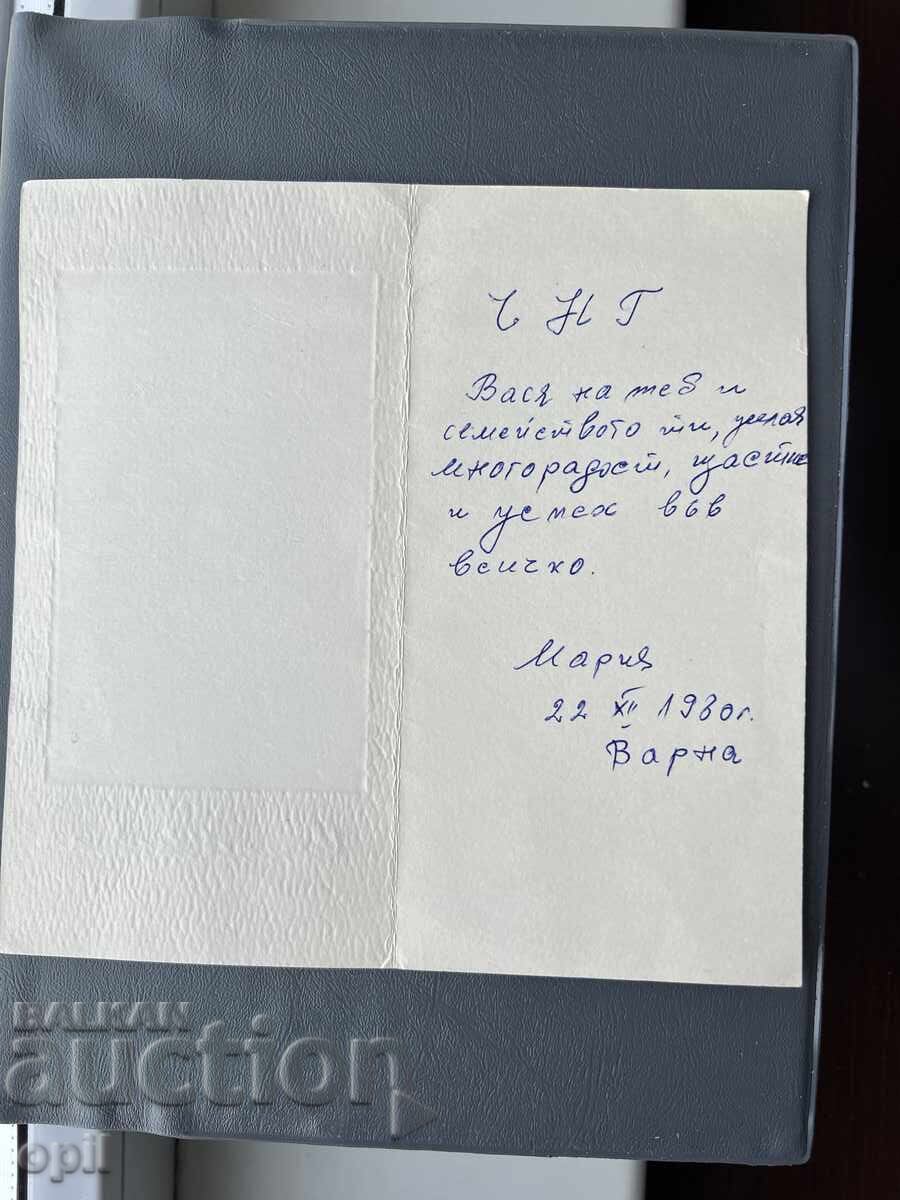 Ч Н Г
Вася на теб и
семейството ти, желая
много радост, щастие
и успех във
всичко.
Мария
22 XII 1980г.
Варна
BALKAN
auction
opil